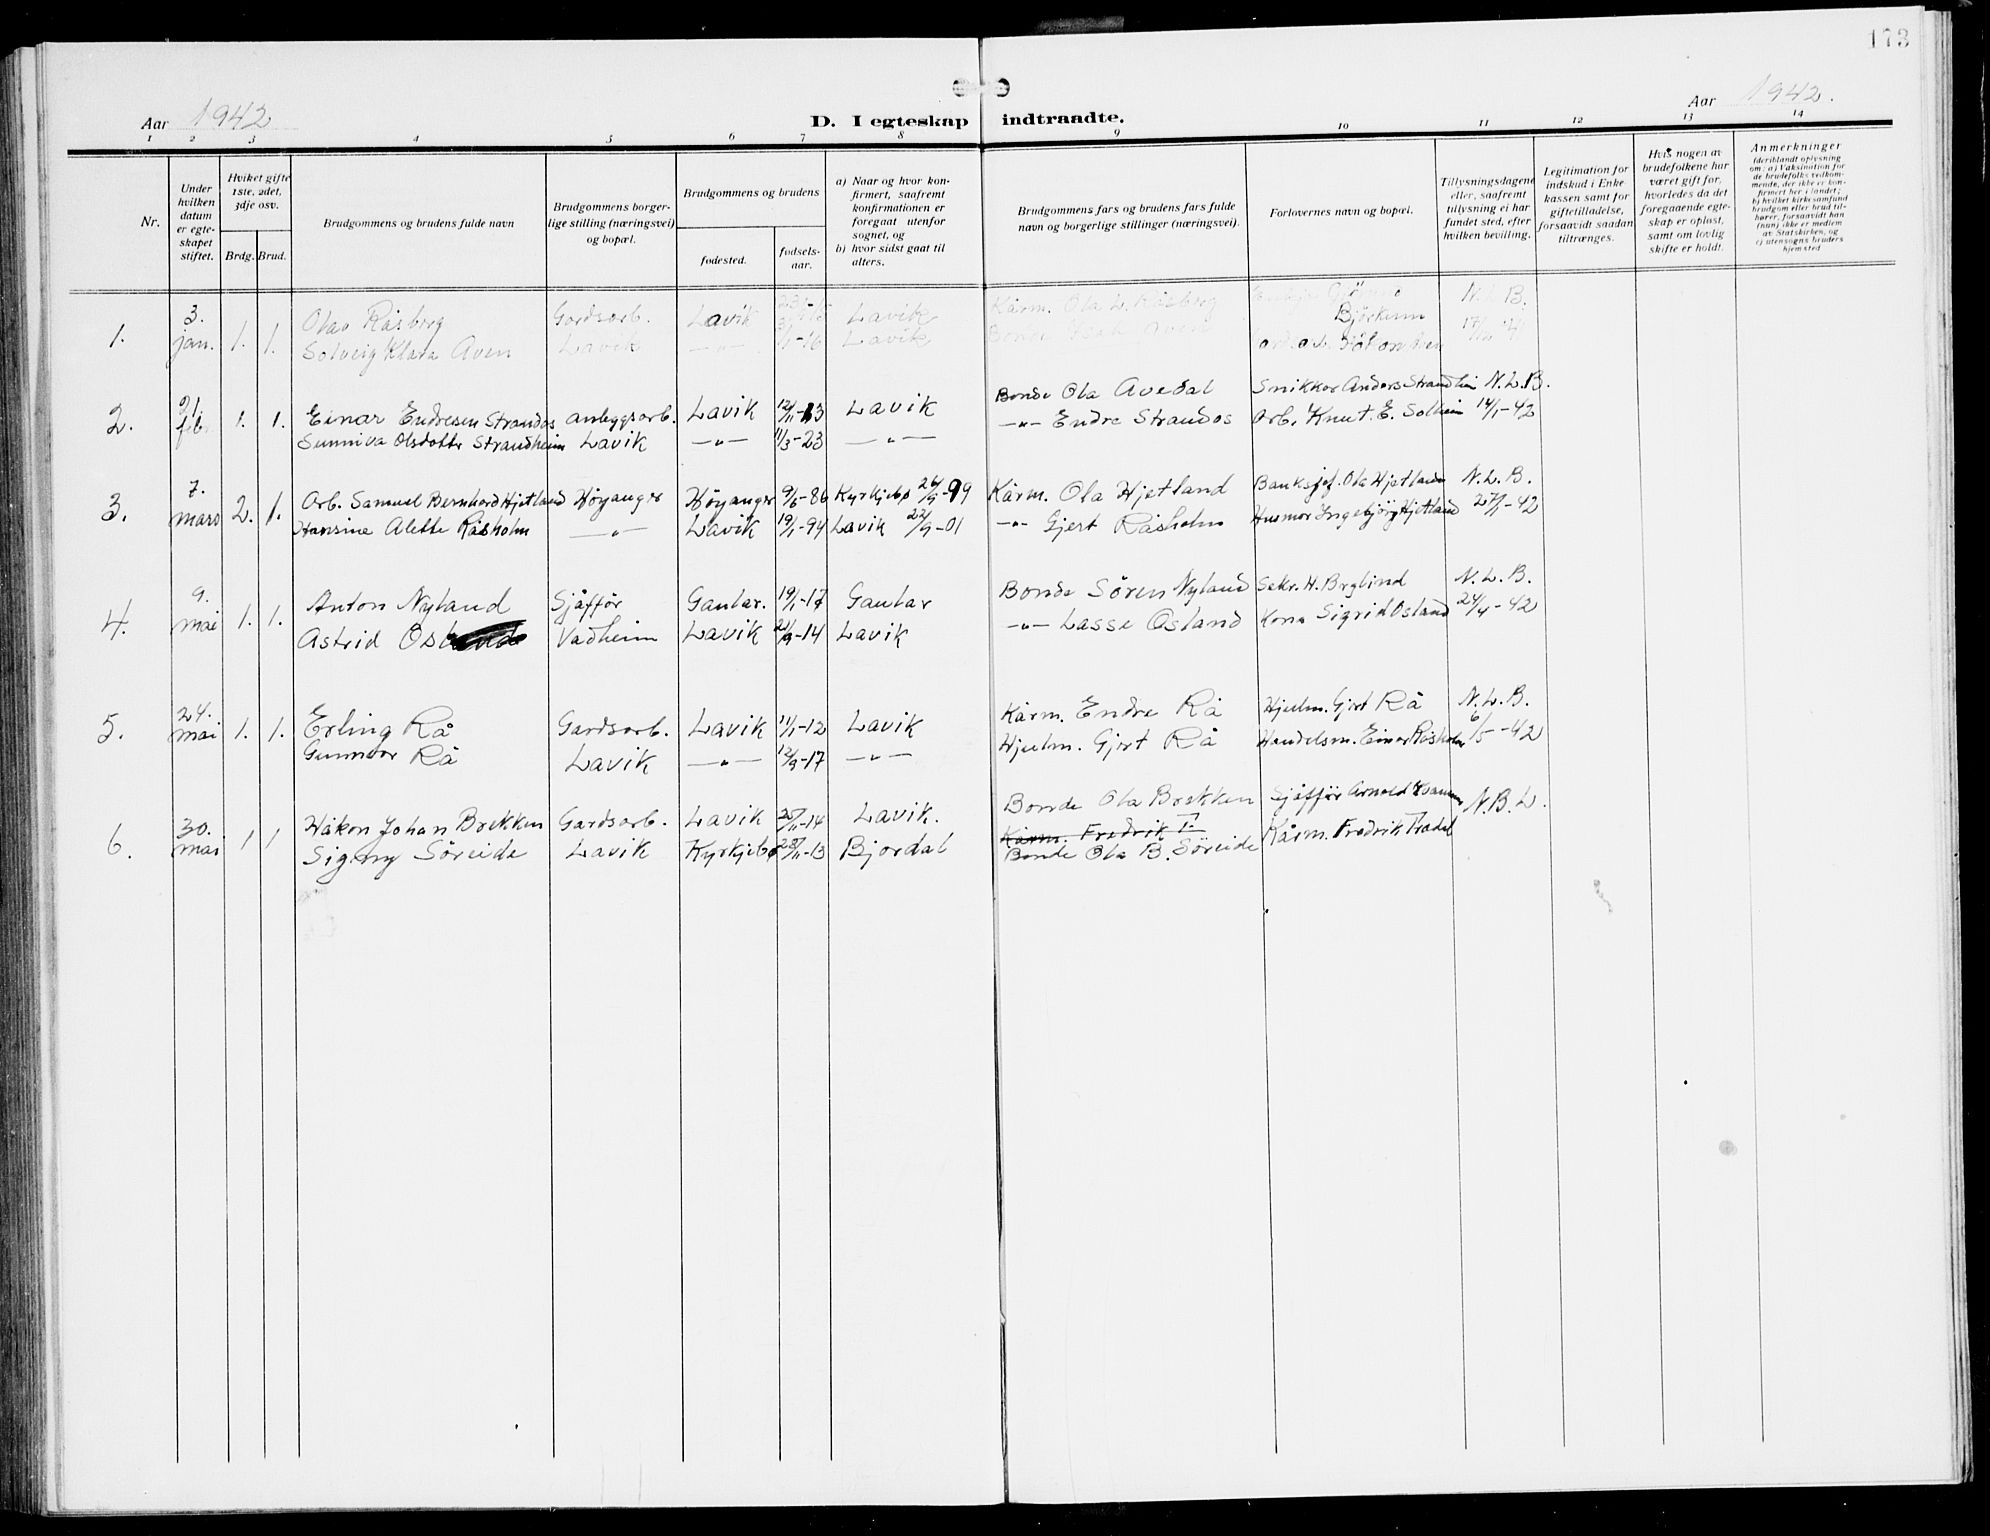 173
Aar 1942
D. I egteskap indtraadte.
Aar 1942.
1 2 3 4 5 6 7 8 9 10 11 12 13 14
Nr.
Under hvilken datum er egteskapet stiftet.
Hviket gifte 1ste, 2det, 3dje osv.
Brdg. Brud.
Brudgommens og brudens fulde navn
Brudgommens borgerlige stilling (næringsvei) og bopæl.
Brudgommens og brudens
fødested.
fødselsaar.
a) Naar og hvor konfirmert, saafremt konfirmationen er foregaat utenfor sognet, og
b) hvor sidst gaat til alters.
Brudgommens fars og brudens fars fulde navn og borgerlige stillinger (næringsvei).
Forlovernes navn og bopæl.
Tillysningsdagene eller, saafremt tillysning ei har fundet sted, efter hvilken bevilling.
Legitimation for indskud i Enkekassen samt for giftetilladelse, forsaavidt saadan tiltrænges.
Hvis nogen av brudefolkene har været gift før, hvorledes da det foregaaende egteskap er opløst, samt om lovlig skifte er holdt.
Anmerkninger (deriblandt oplysning om: a) Vaksination for de brudefolks vedkommende, der ikke er konfirmert her i landet; b) hvilket kirkesamfund brudgom eller brud tilhører, forsaavidt han (hun) ikke er medlem av Statskirken, og c) utensogns bruders hjemsted
1. 3. jan. 1. 1. Olav Råsberg Gardsarb. Lavik Lavik Kårm. Ola L. Råsberg Björkum N.L.B.
Solveig Klara Aven Lavik —"— Lavik Bonde Aven 17/12 41
2. 21 feb. 1. 1. Einar Endresen Strandos anleggsarb. Lavik 12/11-13 Lavik Bonde Ola Avedal Snikkar Anders Strandheim N.L.B.
Sunniva Olsdotter Strandheim Lavik —"— 11/3-23 —"— —"— Endre Strandos Arb. Knut E. Solheim 14/1-42
3. 7. mars 2. 1. Arb. Samuel Bernhard Hjetland Høyanger Høyanger 9/6-86 Kyrkjebø 26/9-99 Kårm. Ola Hjetland Banksjef. Ola Hjetland N.L.B.
Hansine Alette Råsholm —"— Lavik 19/1-94 Lavik 22/9-01 —"— Gjert Råsholm Husmor Ingebjörg Hjetland 27/1-42
4. 9. mai 1. 1. Anton Nyland Sjåför Gaular. 19/1-17 Gaular Bonde Sören Nyland Sekr. H. Berglind N.L.B.
Astrid Osland Vadheim Lavik 21/9-14 Lavik —"— Lasse Osland Kona Sigrid Osland 24/4-42
5. 24. mai 1. 1. Erling Rå Gardsarb. Lavik 11/1-12 Lavik Kårm. Endre Rå Hjulm. Gjert Rå N.L.B.
Gunnvor Rå Lavik —"— 12/9-17 —"— Hjulm. Gjert Rå Handelsm. Einar Råsholm 6/5-42
6. 30. mai 1 1 Håkon Johan Brekken Gardsarb. Lavik 25/11-14 Lavik. Bonde Ola Brekken Sjåför Arnold Kvamme N.B.L.
Kårm. Fredrik T.
Signy Söreide Lavik Kyrkjebø 28/11-13 Bjordal Bonde Ola B. Söreide Kårm. Fredrik Tradal